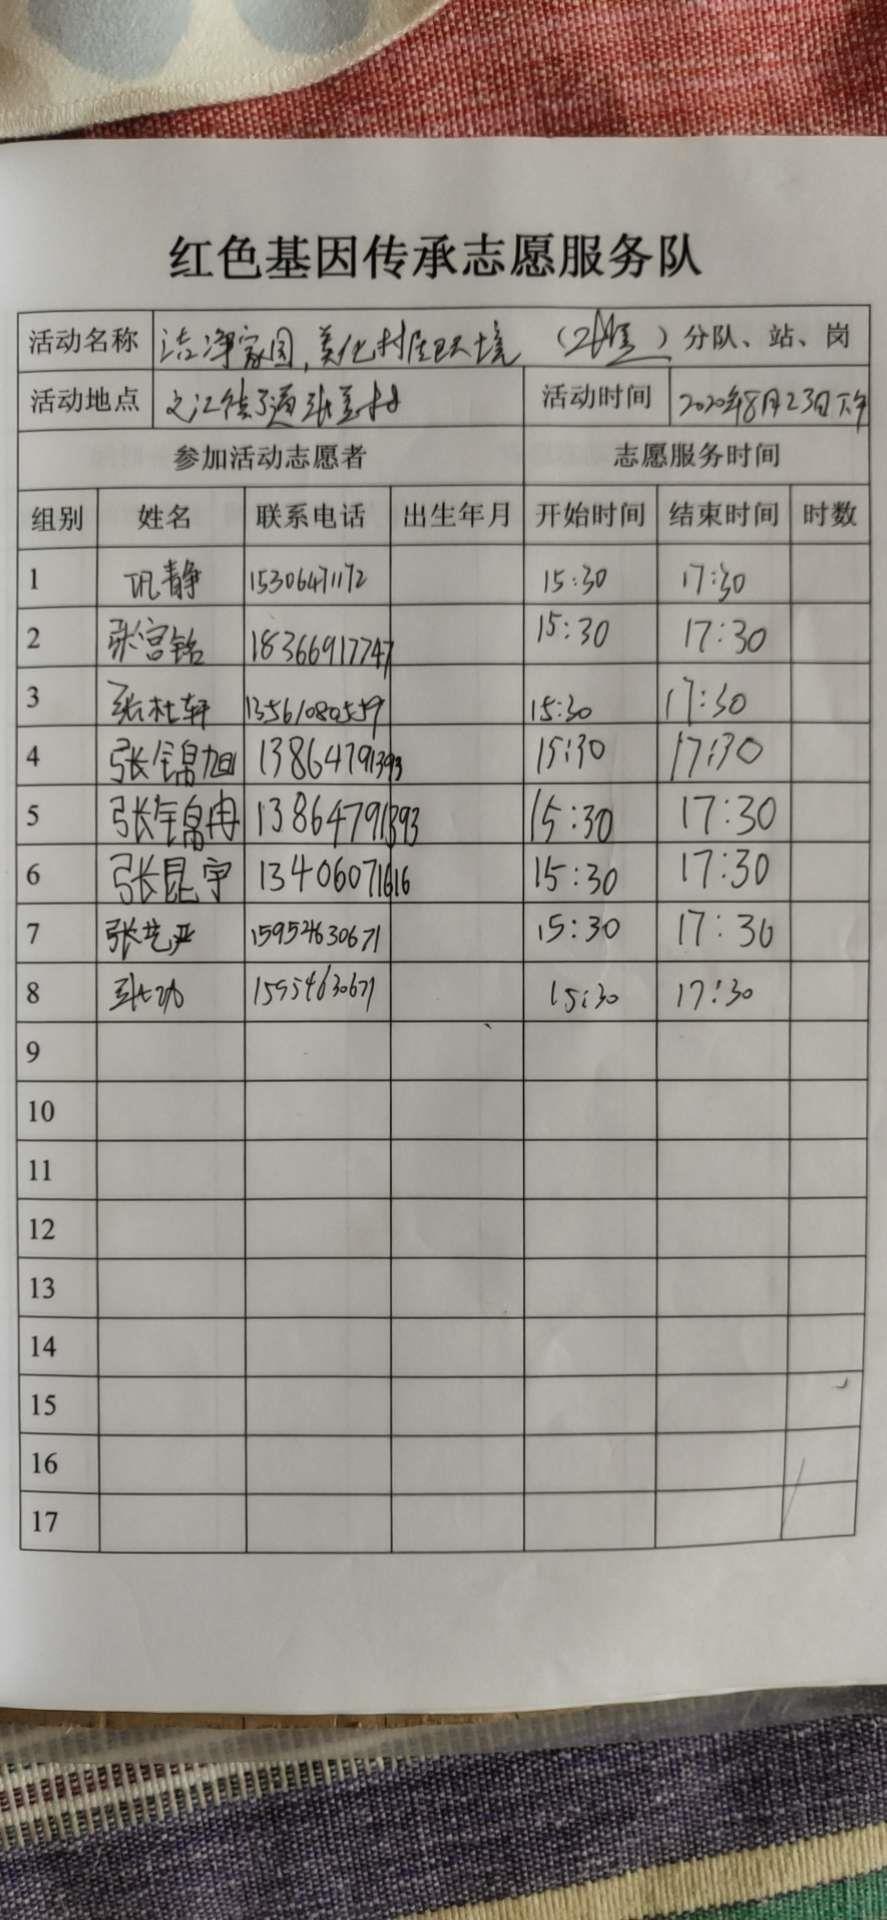 红色基因传承志愿服务队
活动名称 洁净家园,美化村居环境 ( ) 分队、站、岗
活动地点 活动时间 2020年8月23日下午
参加活动志愿者 志愿服务时间
组别 姓名 联系电话 出生年月 开始时间 结束时间 时数
1 巩静 15306471172 15:30 17:30
2 张宫铭 18366917747 15:30 17:30
3 张杜轩 13561080559 15:30 17:30
4 张锦旭 13864791393 15:30 17:30
5 张锦冉 13864791393 15:30 17:30
6 张昆宇 13406071616 15:30 17:30
7 张艺严 15954630671 15:30 17:30
8 张功 15954630671 15:30 17:30
9
10
11
12
13
14
15
16
17